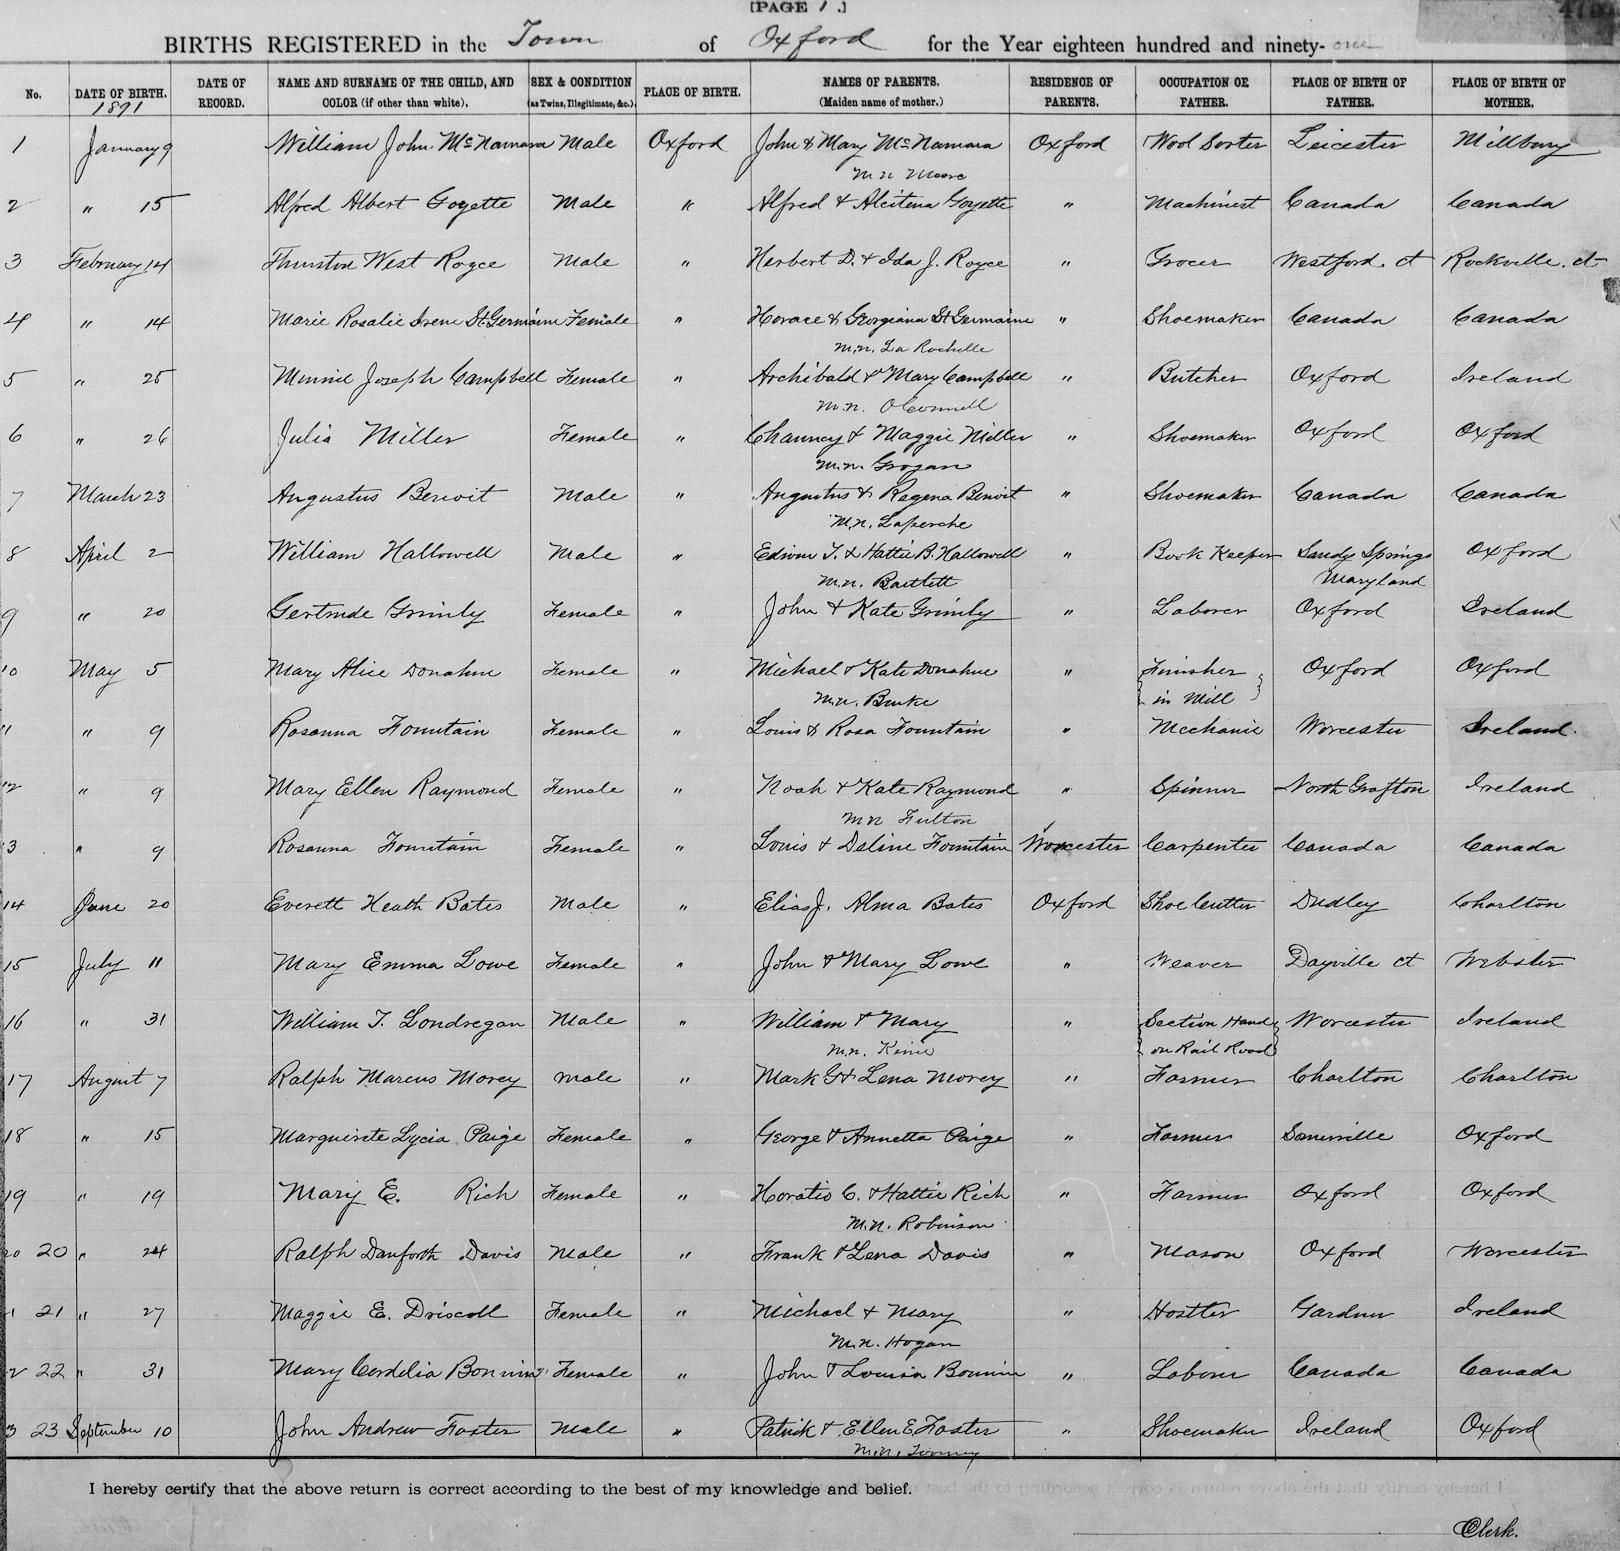 [PAGE 1.]
BIRTHS REGISTERED in the Town of Oxford for the Year eighteen hundred and ninety-one
No. DATE OF BIRTH. 1891 DATE OF RECORD. NAME AND SURNAME OF THE CHILD, AND COLOR (if other than white). SEX & CONDITION (as Twins, Illegitimate, &c.) PLACE OF BIRTH. NAMES OF PARENTS. (Maiden name of mother.) RESIDENCE OF PARENTS. OCCUPATION OF FATHER. PLACE OF BIRTH OF FATHER. PLACE OF BIRTH OF MOTHER.
1 January 9 William John McNamara Male Oxford John & Mary McNamara Oxford Wool Sorter Leicester Millbury
m n Moore
2 " 15 Alfred Albert Goyette Male " Alfred & Goyette " Machinist Canada Canada
3 February 14 Thurston West Royce Male " Herbert D. & Ida J. Royce " Grocer Westford. ct Rockville. ct
4 " 14 Marie Rosalie Irene St.Germaine Female " Horace & Georgiana St Germaine " Shoemaker Canada Canada
m.n. La Rochelle
5 " 25 Minnie Joseph Campbell Female " Archibald & Mary Campbell " Butcher Oxford Ireland
m.n. OConnell
6 " 26 Julia Miller Female " Chauncy & Maggie Miller " Shoemaker Oxford Oxford
m.n. Grogan
7 March 23 Augustus Benoit Male " Augustus & Regena Benoit " Shoemaker Canada Canada
m.n. Laperche
8 April 2 William Hallowell Male " Edwin T. & Hattie B. Hallowell " Book Keeper Sandy Springs Oxford
m.n. Bartlett Maryland
9 " 20 Gertrude Grimly Female " John & Kate Grimly " Laborer Oxford Ireland
10 May 5 Mary Alice Donahue Female " Michael & Kate Donahue " Finisher Oxford Oxford
m.n. Burke in Mill
11 " 9 Rosanna Fountain Female " Louis & Rosa Fountain " Mechanic Worcester Ireland.
12 " 9 Mary Ellen Raymond Female " Noah & Kate Raymond " Spinner North Grafton Ireland
m n Fulton
3 " 9 Rosanna Fountain Female " Louis & Deline Fountain Worcester Carpenter Canada Canada
14 June 20 Everett Heath Bates Male " Elias J. Alma Bates Oxford Shoe Cutter Dudley Charlton
15 July 11 Mary Emma Lowe Female " John & Mary Lowe " Weaver Dayville ct Webster
16 " 31 William T. Londregan Male " William & Mary " Section Hand Worcester Ireland
m.n. on Rail Road
17 August 7 Ralph Marcus Morey male " Mark G & Lena Morey " Farmer Charlton Charlton
18 " 15 Marguerite Lycia Paige Female " George & Annetta Paige " Farmer Somerville Oxford
19 " 19 Mary E. Rich Female " Horatio C. & Hattie Rich " Farmer Oxford Oxford
m.n. Robinson
20 20 " 24 Ralph Danforth Davis Male " Frank & Lena Davis " Mason Oxford Worcester
1 21 " 27 Maggie E. Driscoll Female " Michael & Mary " Hostler Gardner Ireland
m.n. Hogan
2 22 " 31 Mary Cordelia Bonnin Female " John & Louisa Bonnin " Laborer Canada Canada
3 23 September 10 John Andrew Foster Male " Patrick & Ellen E Foster " Shoemaker Ireland Oxford
m.n. Toomey
I hereby certify that the above return is correct according to the best of my knowledge and belief.
Clerk.